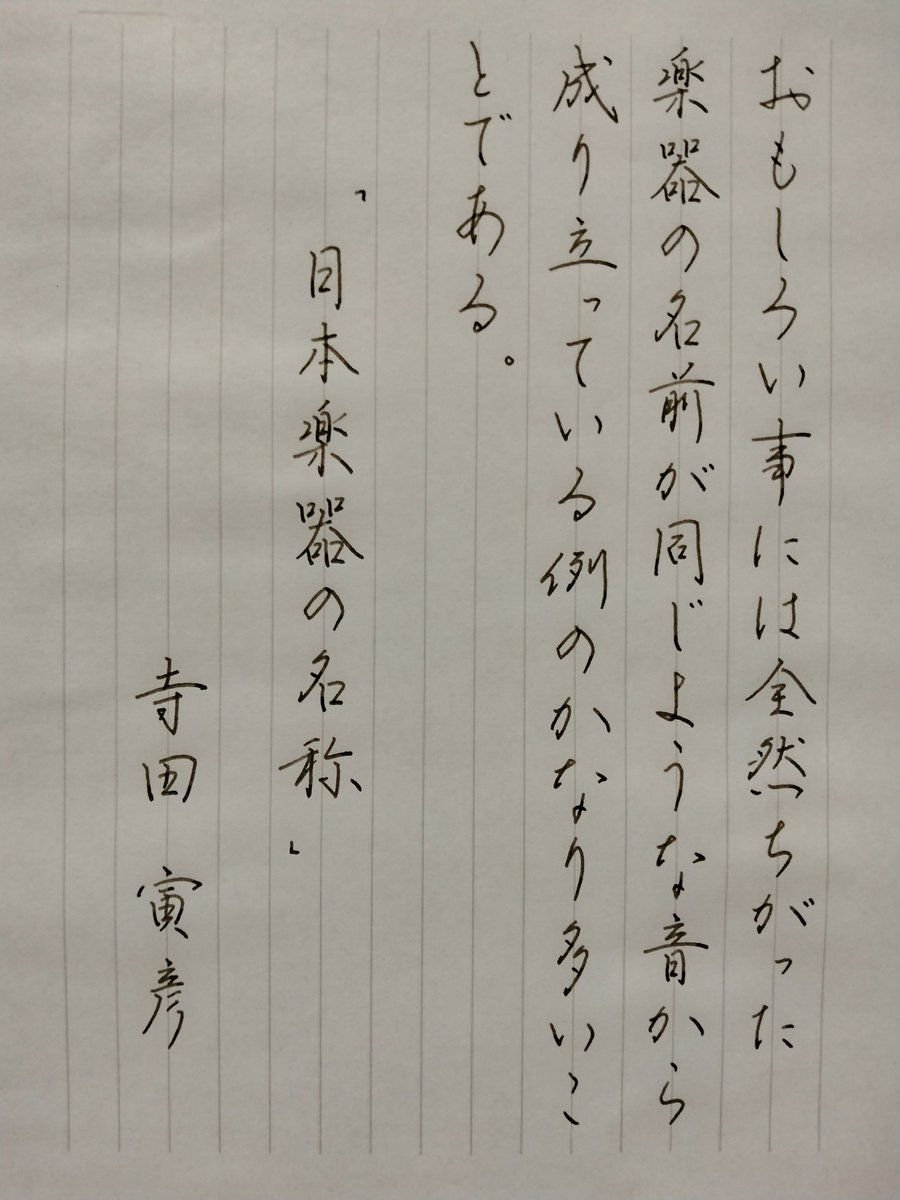 おもしろい事には全然ちがった
楽器の名前が同じような音から
成り立っている例のかなり多いこ
とである。
「日本楽器の名称」
寺田 寅彦